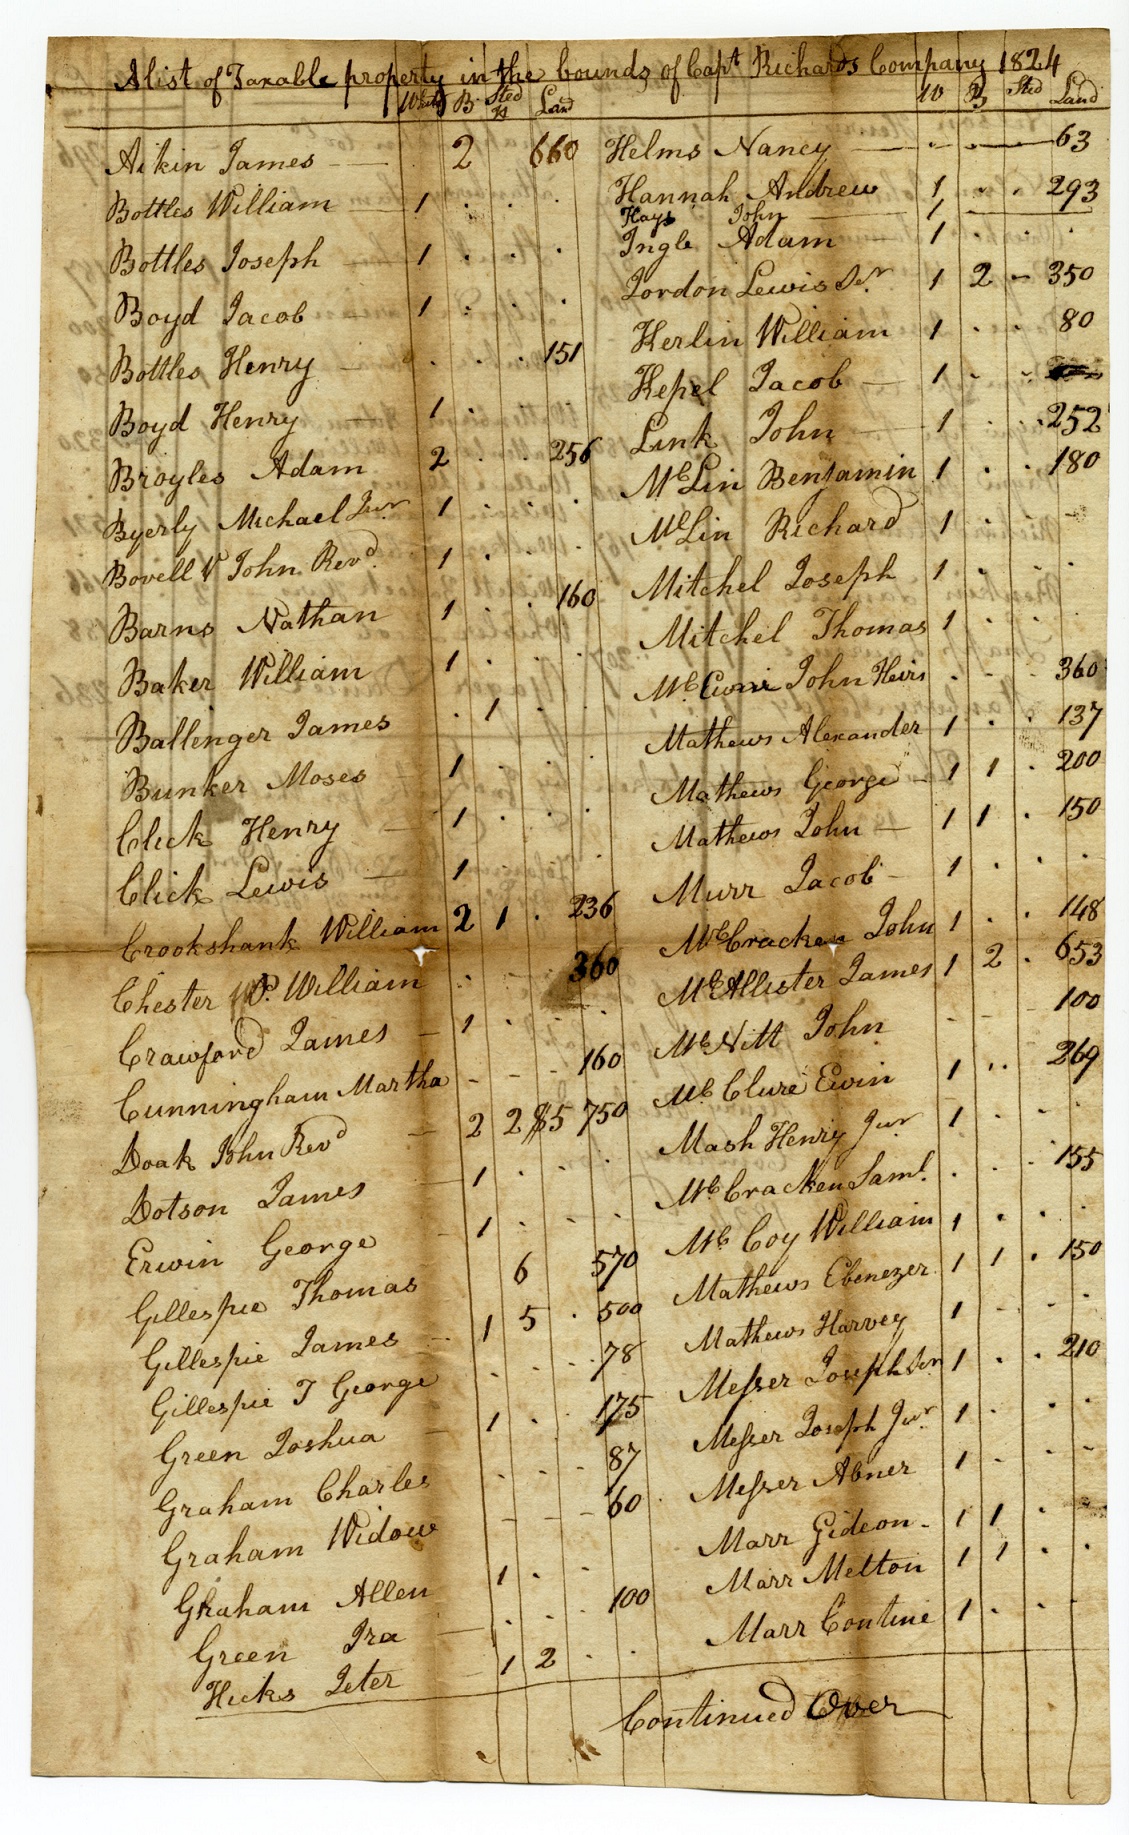 A list of Taxable property in the bounds of Capt Richards Company 1824
White B Sted H Land
Aikin James — . 2 660
Bottles William — 1 . . .
Bottles Joseph — 1 . . .
Boyd Jacob — 1 . . .
Bottles Henry — . . . 151
Boyd Henry — 1 . . .
Broyles Adam 2 . . 256
Byerly Michael Junr 1 . . .
Bovell V John Revd. 1 . . .
Barns Nathan 1 . . 160
Baker William 1 . . .
Ballenger James . 1 . .
Bunker Moses 1 . . .
Click Henry — 1 . . .
Click Lewis — 1 . . .
Crookshank William 2 1 . 236
Chester P. William . - - 360
Crawford James — 1 . . .
Cunningham Martha - - - 160
Doak John Revd — 2 2 $5 750
Dotson James — 1 . . .
Erwin George - 1 . . .
Gillespie Thomas 6 570
Gillespie James - 1 5 . 500
Gillespie T George . . . 78
Green Joshua - 1 . . 175
Graham Charles . . . 87
Graham Widow - - - 60
Graham Allen 1 . . .
Green Ira — . . . 100
Hicks Jeter — 1 2 . .
W B Sted Land
Helms Nancy — . . — 63
Hannah Andrew 1 . . 293
Hays John — 1 —
Ingle Adam — 1 . . .
Jordon Lewis Senr 1 2 - 350
Kerlin William 1 . . 80
Kepel Jacob — 1 . .
Link John — 1 . . 252
McLin Benjamin 1 . . 180
McLin Richard 1 . . -
Mitchel Joseph 1 . . .
Mitchel Thomas 1 . . .
McEwin John Heirs . . . 360
Mathews Alexander 1 . . 137
Mathews George - 1 1 . 200
Mathews John — 1 1 . 150
Murr Jacob - 1 . . .
McCracken John 1 . . 148
McAllister James 1 2 . 653
McNitt John - - - 100
McClure Ewin 1 . . 269
Mash Henry Junr 1 . . .
McCracken Saml. . . . 155
McCoy William 1 . . .
Mathews Ebenezer 1 1 . 150
Mathews Harvey 1 - - -
Messer Joseph Senr 1 . . 210
Messer Joseph Junr 1 . . .
Messer Abner 1 . . -
Marr Gideon - 1 1 . .
Marr Melton 1 1 . .
Marr Contine 1 . . .
Continued Over